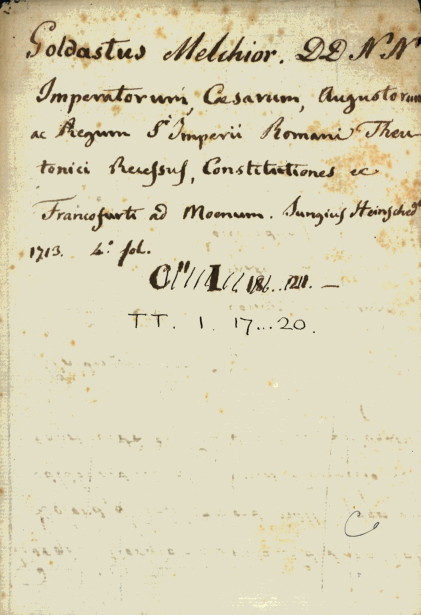 Goldastus Melchior. DD NN
Imperatorum, Cæsarum, Augustorum
ac Regum S. Imperii Romani Theu-
tonici Recessus, Constitutiones &c
Francofurti ad Moenum. Jungius Heinsched
1713. 4. fol.
TT. 1. 17...20.